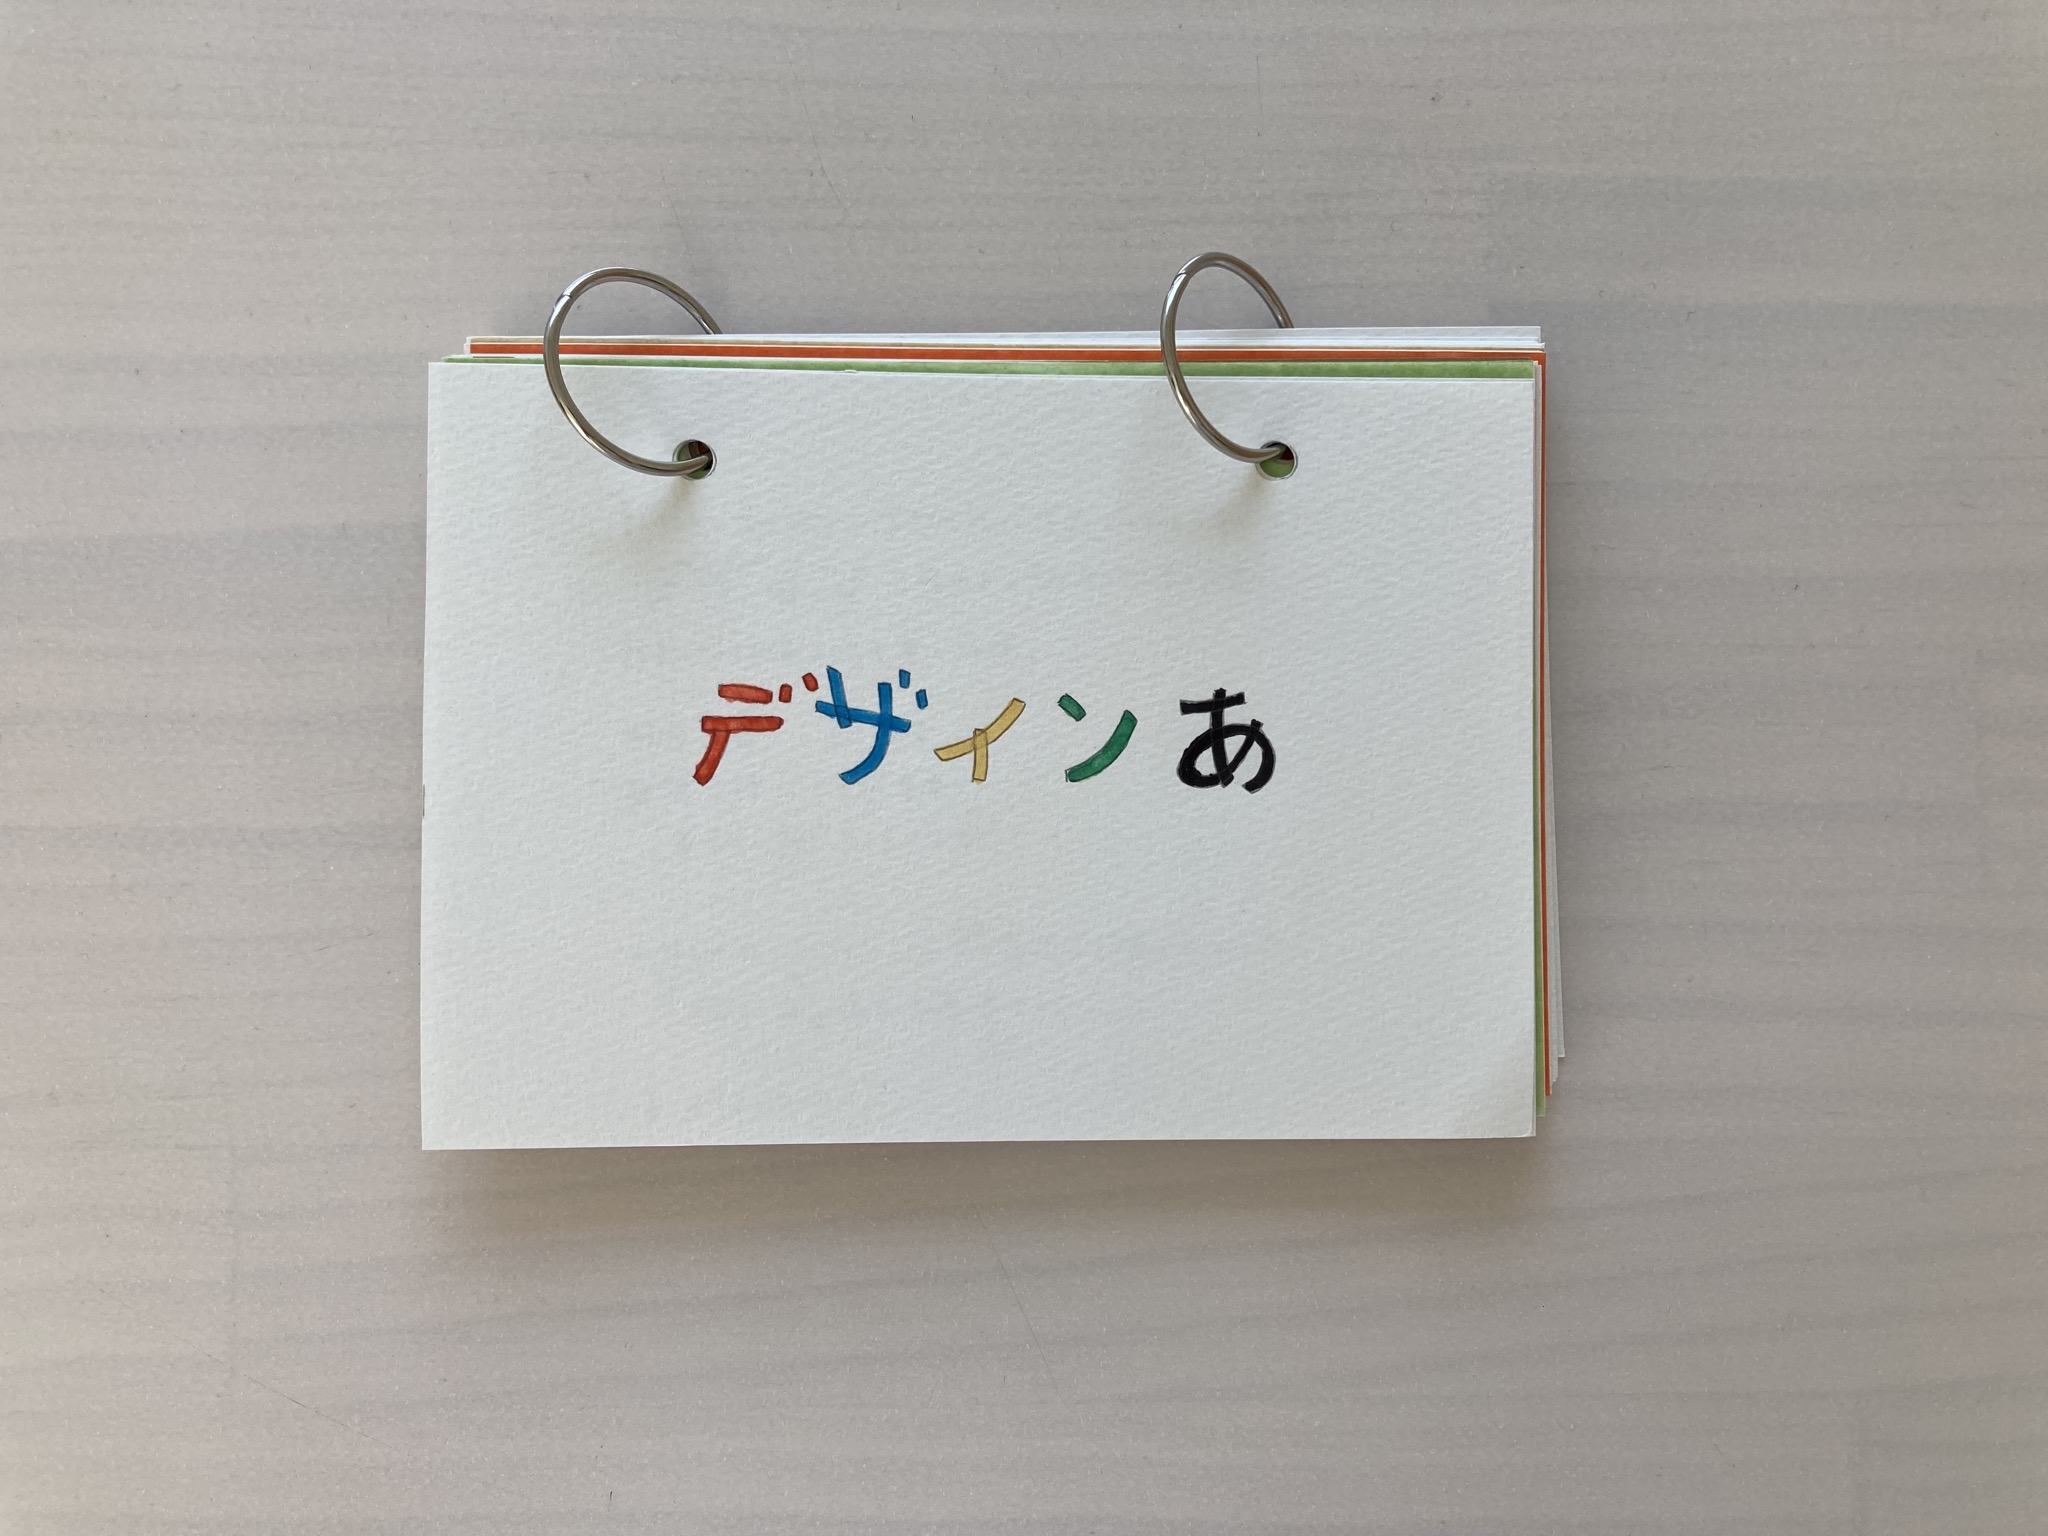 デザインあ